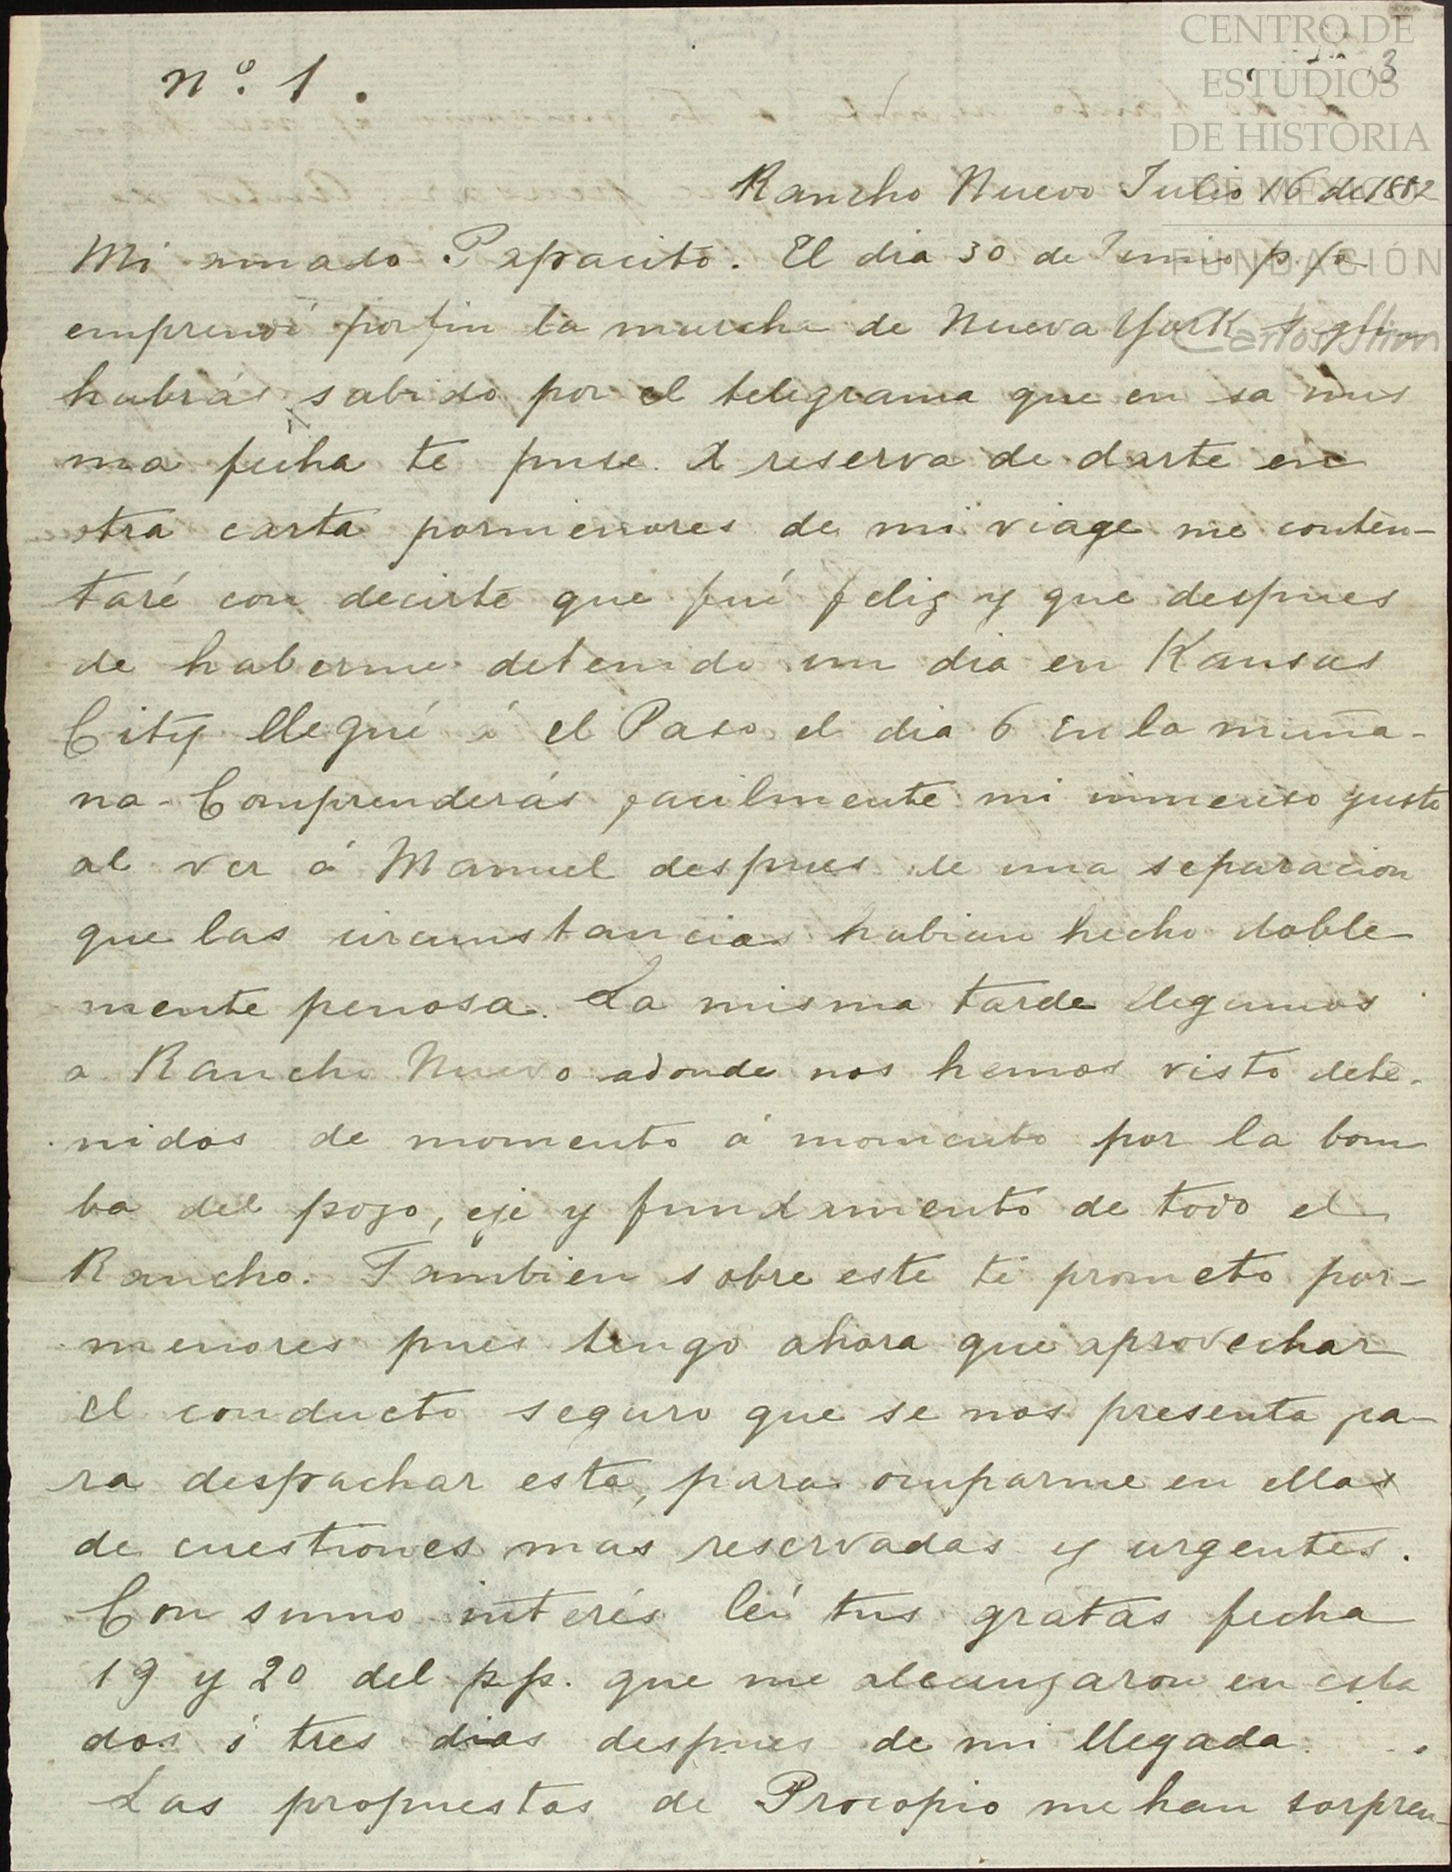 CENTRO DE
ESTUDIOS
DE HISTORIA
DE MEXICO
FUNDACIÓN
Carlos Slim
3
nº. 1.
Rancho Nuevo Julio 16 de 1882
Mi amado Papacito. El dia 30 de Junio p. pº
emprendí por fin la marcha de Nueva York segun
habrás sabido por el telegrama que en sa mis
ma fecha te puse. A reserva de darte en
otra carta pormenores de mi viage me conten-
taré con decirte que fué feliz y que despues
de haberme detenido un dia en Kansas
City llegué á el Paso el dia 6 en la maña-
na- Comprenderás facilmente mi inmenso gusto
al ver á Manuel despues de una separacion
que las circunstancias habian hecho doble
mente penosa. La misma tarde llegamos
a Rancho Nuevo adonde nos hemos visto dete-
nidos de momento á momento por la bom
ba del pozo, eje y fundamento de todo el
Rancho. Tambien sobre este te prometo por-
menores pues tengo ahora que aprovechar
el conducto seguro que se nos presenta pa-
ra despachar esta, para ocuparme en ellas
de cuestiones mas reservadas y urgentes.
Con sumo interés leí tus gratas fecha
19 y 20 del p.p. que me alcanzaron en esta
dos ó tres dias despues de mi llegada.
Las propuestas de Procopio me han sorpren-